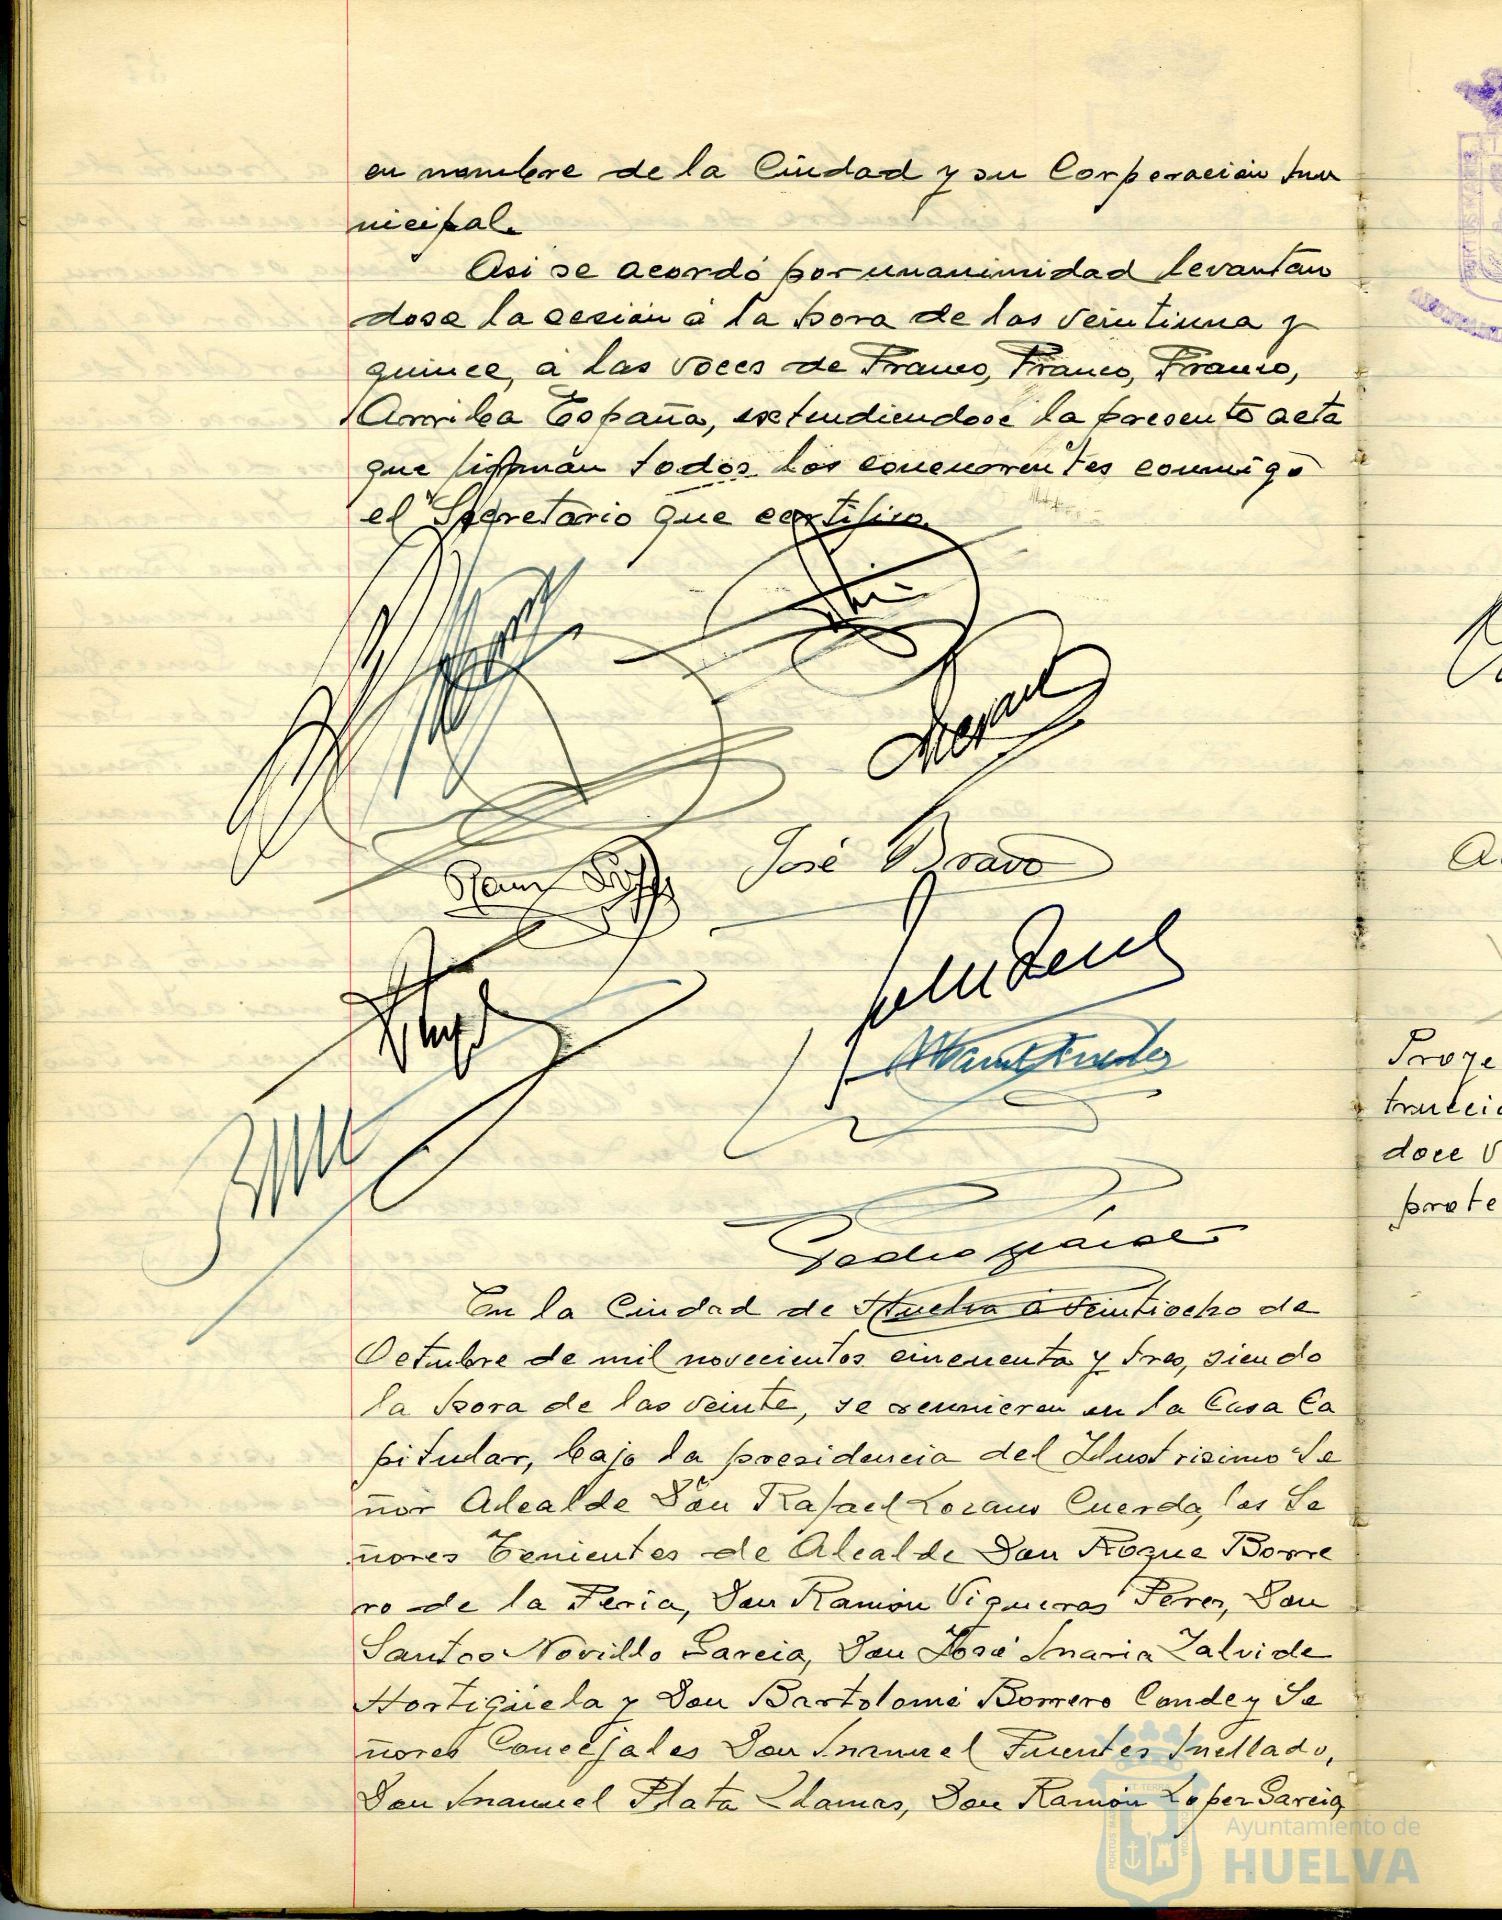 en nombre de la Ciudad y su Corporación mu
nicipal.
Asi se acordó por unanimidad levantan
dose la sesión á la hora de las veintiuna y
quince, á las voces de Franco, Franco, Franco,
Arriba España, extendiendose la presente acta
que firman todos los concurrentes conmigo
el Secretario que certifico.
José Bravo
Pedro
En la Ciudad de Huelva á veintiocho de
Octubre de mil novecientos cincuenta y tres, siendo
la hora de las veinte, se reunieron en la Casa Ca
pitular, bajo la presidencia del Ilustrisimo Se
ñor Alcalde Don Rafael Lozano Cuerda, los Se
ñores Tenientes de Alcalde Don Roque Borre
ro de la Feria, Don Ramón Vigueras Perez, Don
Santos Novillo Garcia, Don José Maria Zalvide
Hortigüela y Don Bartolomé Borrero Conde y Se
ñores Concejales Don Manuel Fuentes Mellado,
Don Manuel Plata Llamas, Don Ramón Lopez Garcia,
Proye
trucció
doce v
prote
Ayuntamiento de
HUELVA